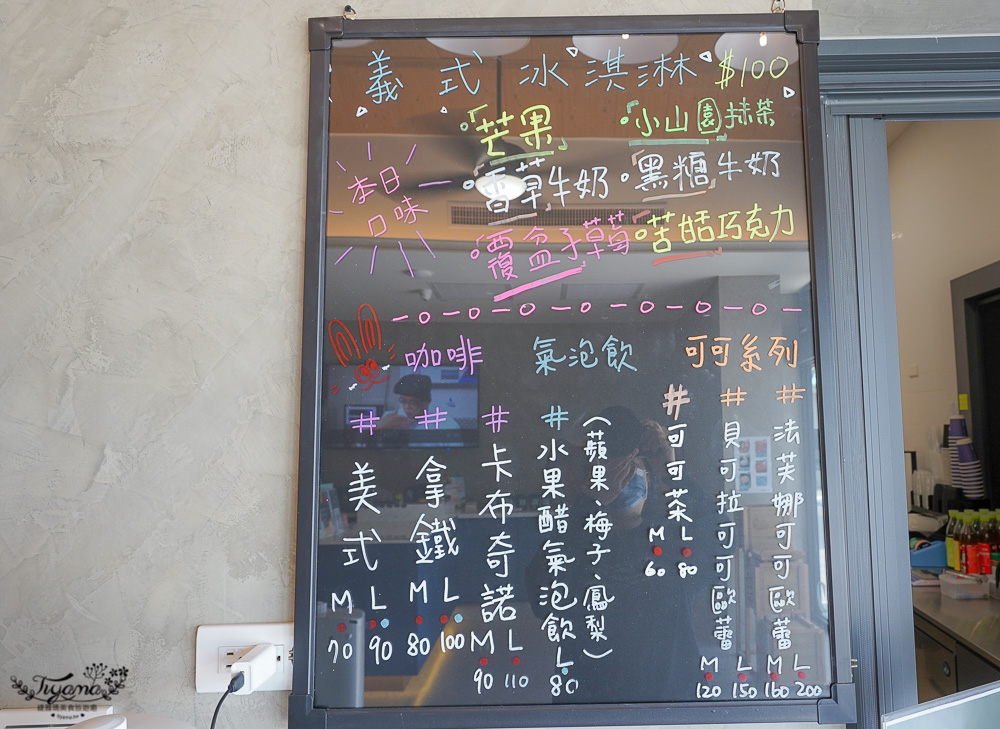 義式冰淇淋 $100
本日口味
「芒果」
「小山園」抹茶
「香草」牛奶
黑糖牛奶
覆盆子草莓
苦甜巧克力
咖啡
氣泡飲
可可系列
#美式
M L
70 90
#拿鐵
M L
80 100
#卡布奇諾
M L
90 110
#水果醋氣泡飲
(蘋果、梅子、鳳梨)
L
80
#可可茶
M L
60 80
#貝可拉可可歐蕾
M L
120 150
#法芙娜可可歐蕾
M L
160 200
Tiyama